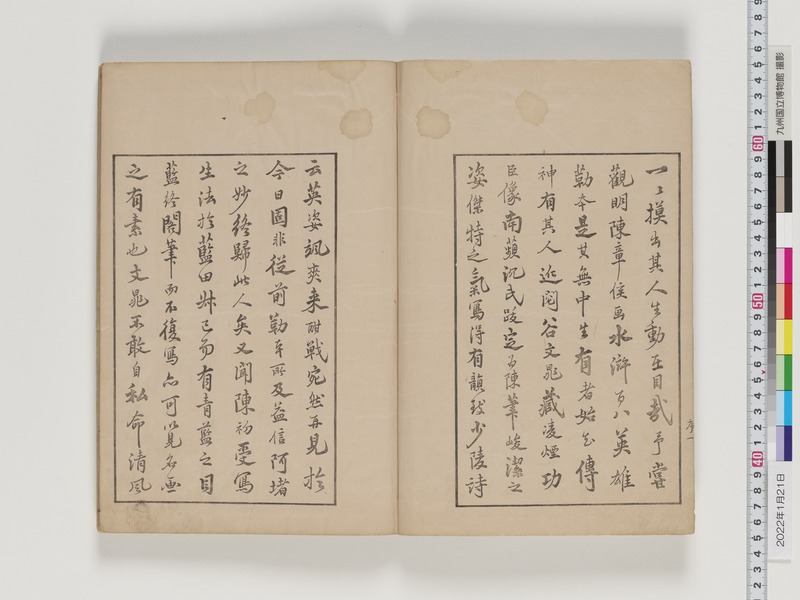 一〻摸出其人生動在目哉予嘗
觀明陳章侯画水滸百八英雄
勒本是其無中生有者始知傳
神有其人近閲谷文晁藏凌煙功
臣像南蘋沈氏跋定為陳筆峻潔之
姿傑特之氣寫得有韻致少陵詩
云英姿颯爽来酣戰宛然再見於
今日固非從前勒本所及益信阿堵
之妙終歸此人矣又聞陳初受寫
生法於藍田叔已而有青藍之目
藍終閣筆而不復寫亦可以見名画
之有素也文晁不敢自私命清風
序 一
九州国立博物館 撮影
2022年1月21日
9 8 7 6 5 4 3 2 1 60
9 8 7 6 5 4 3 2 1 50
9 8 7 6 5 4 3 2 1 40